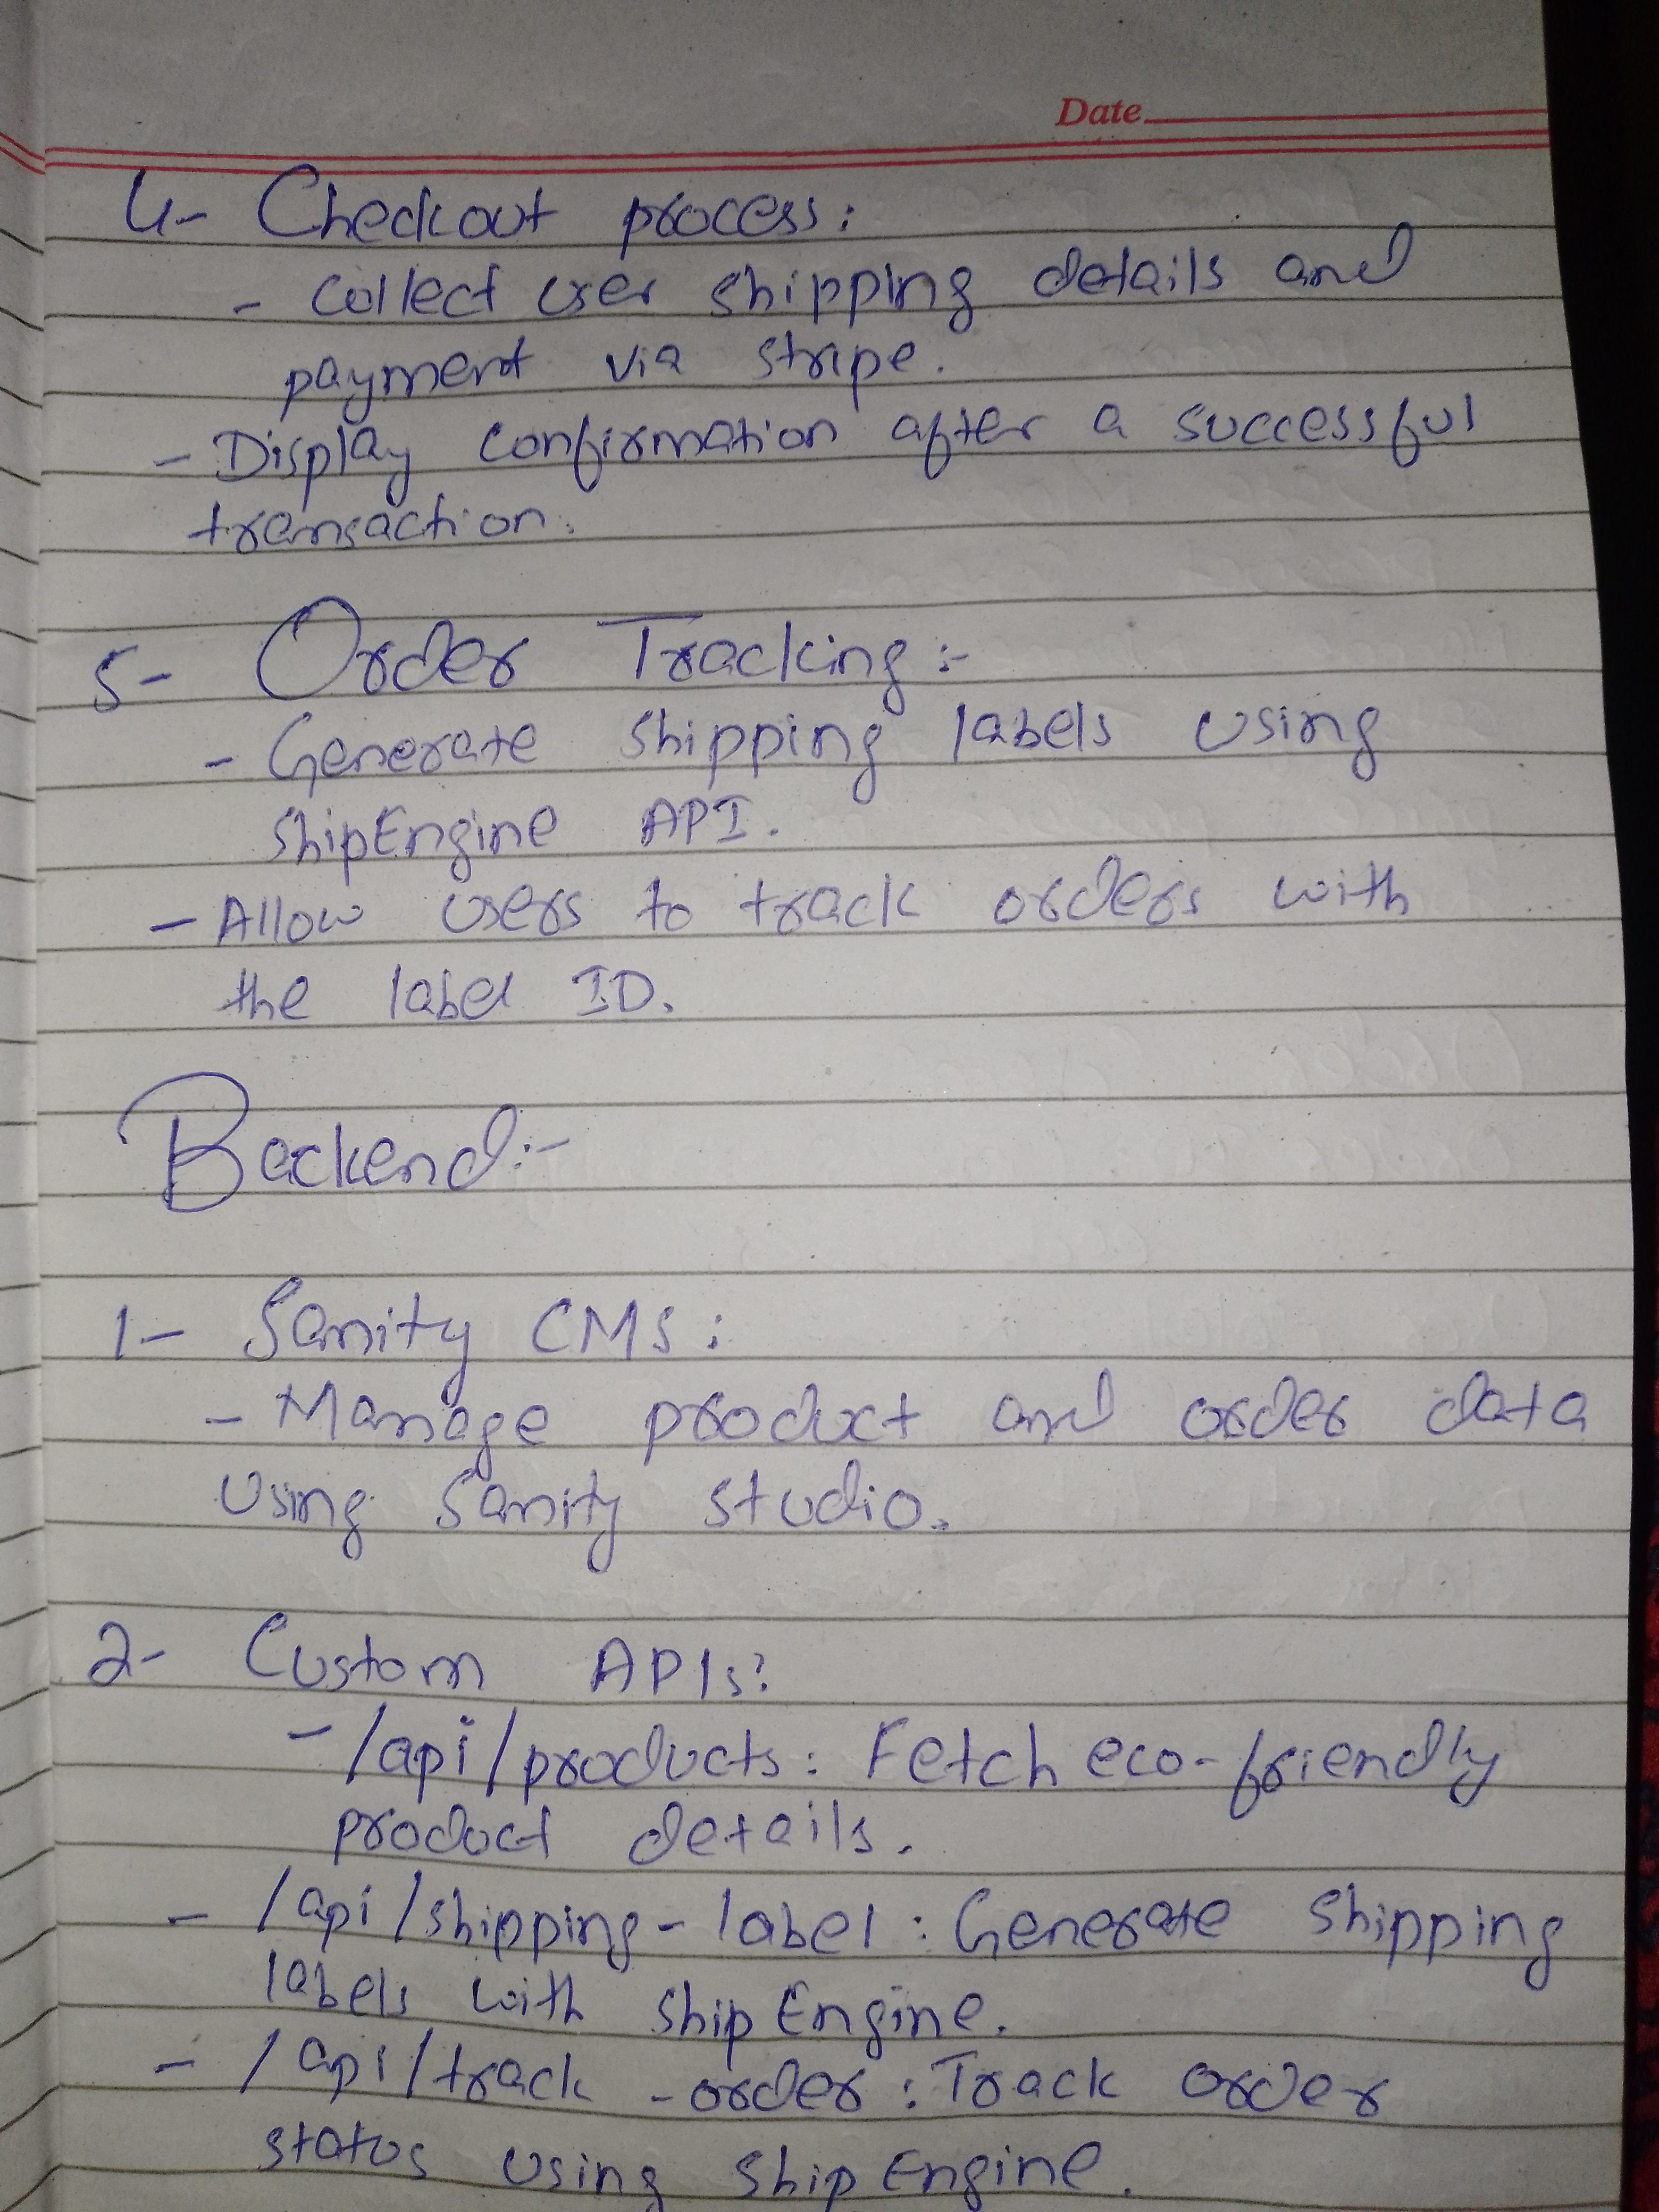 Date
4- Checkout process:
- Collect user shipping details and
payment via stripe.
- Display confirmation after a successful
transaction.
5- Order Tracking:-
- Generate shipping labels using
shipEngine API.
- Allow users to track orders with
the label ID.
Backend:-
1- Sanity CMS:
- Manage product and order data
using Sanity studio.
2- Custom APIs:
- /api/products: Fetch eco-friendly
product details.
- /api/shipping-label: Generate shipping
labels with ship Engine.
- /api/track-order: Track order
status using ship Engine.